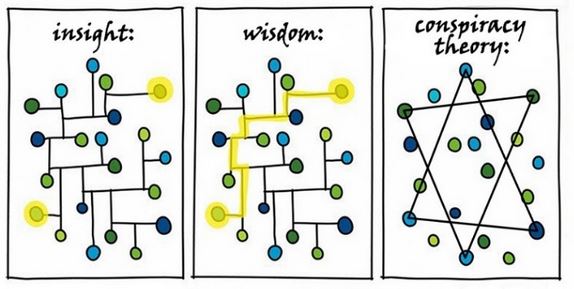 insight:
wisdom:
conspiracy
theory: